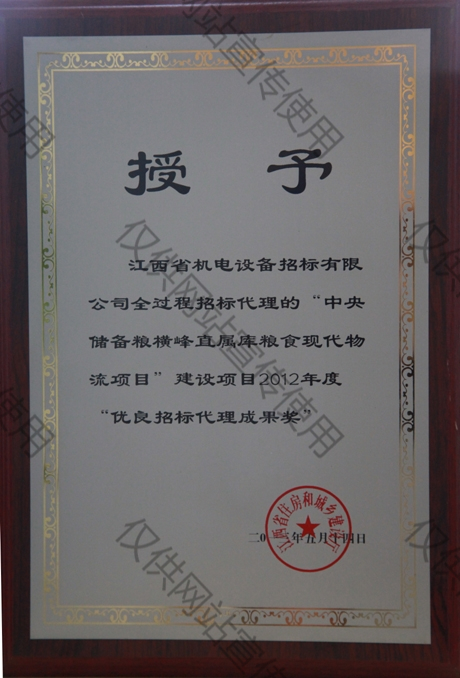 授予
江西省机电设备招标有限
公司全过程招标代理的“中央
储备粮横峰直属库粮食现代物
流项目”建设项目2012年度
“优良招标代理成果奖”
江西省住房和城乡建设厅
年五月十四日
仅供网站宣传使用
仅供网站宣传使用
仅供网站宣传使用